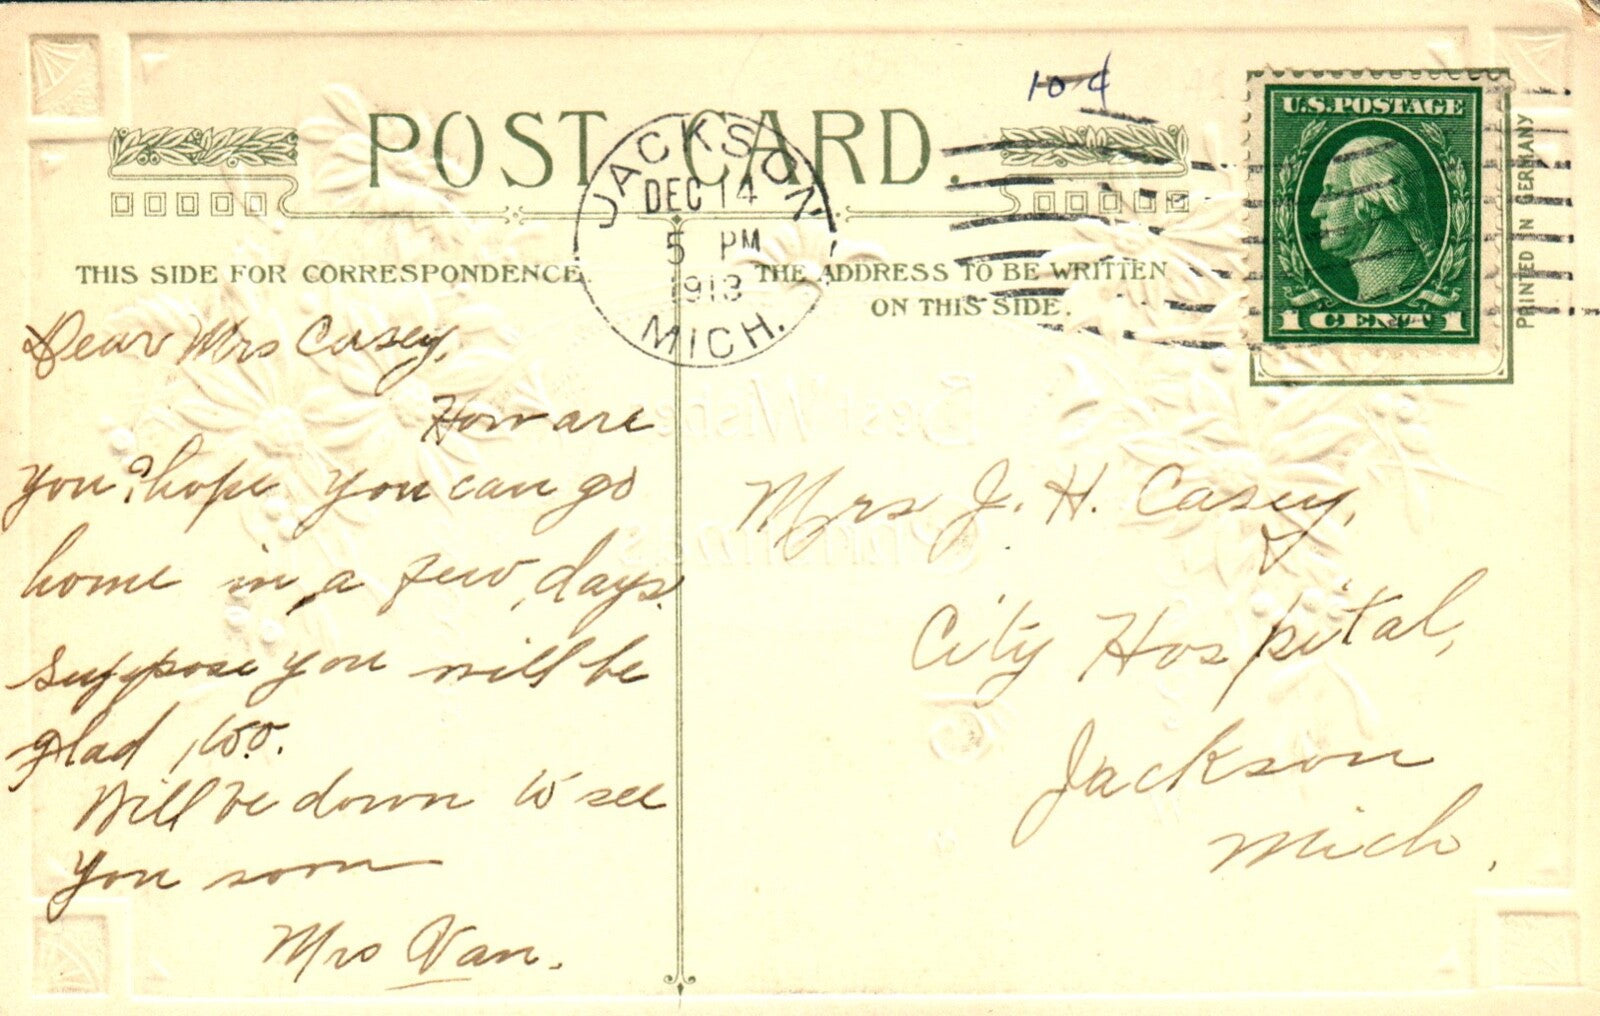 10¢
POST CARD.
U.S.POSTAGE
1 CENT 1
PRINTED IN GERMANY
JACKSON
DEC 14
5 PM
1913
MICH.
THIS SIDE FOR CORRESPONDENCE.
THE ADDRESS TO BE WRITTEN
ON THIS SIDE.
Dear Mrs Casey,
How are
you? hope you can go
home in a few days.
suppose you will be
glad, too.
Will be down to see
you soon
Mrs Van.
Mrs J. H. Casey,
City Hospital,
Jackson
Mich.
Best Wishes
Christmas